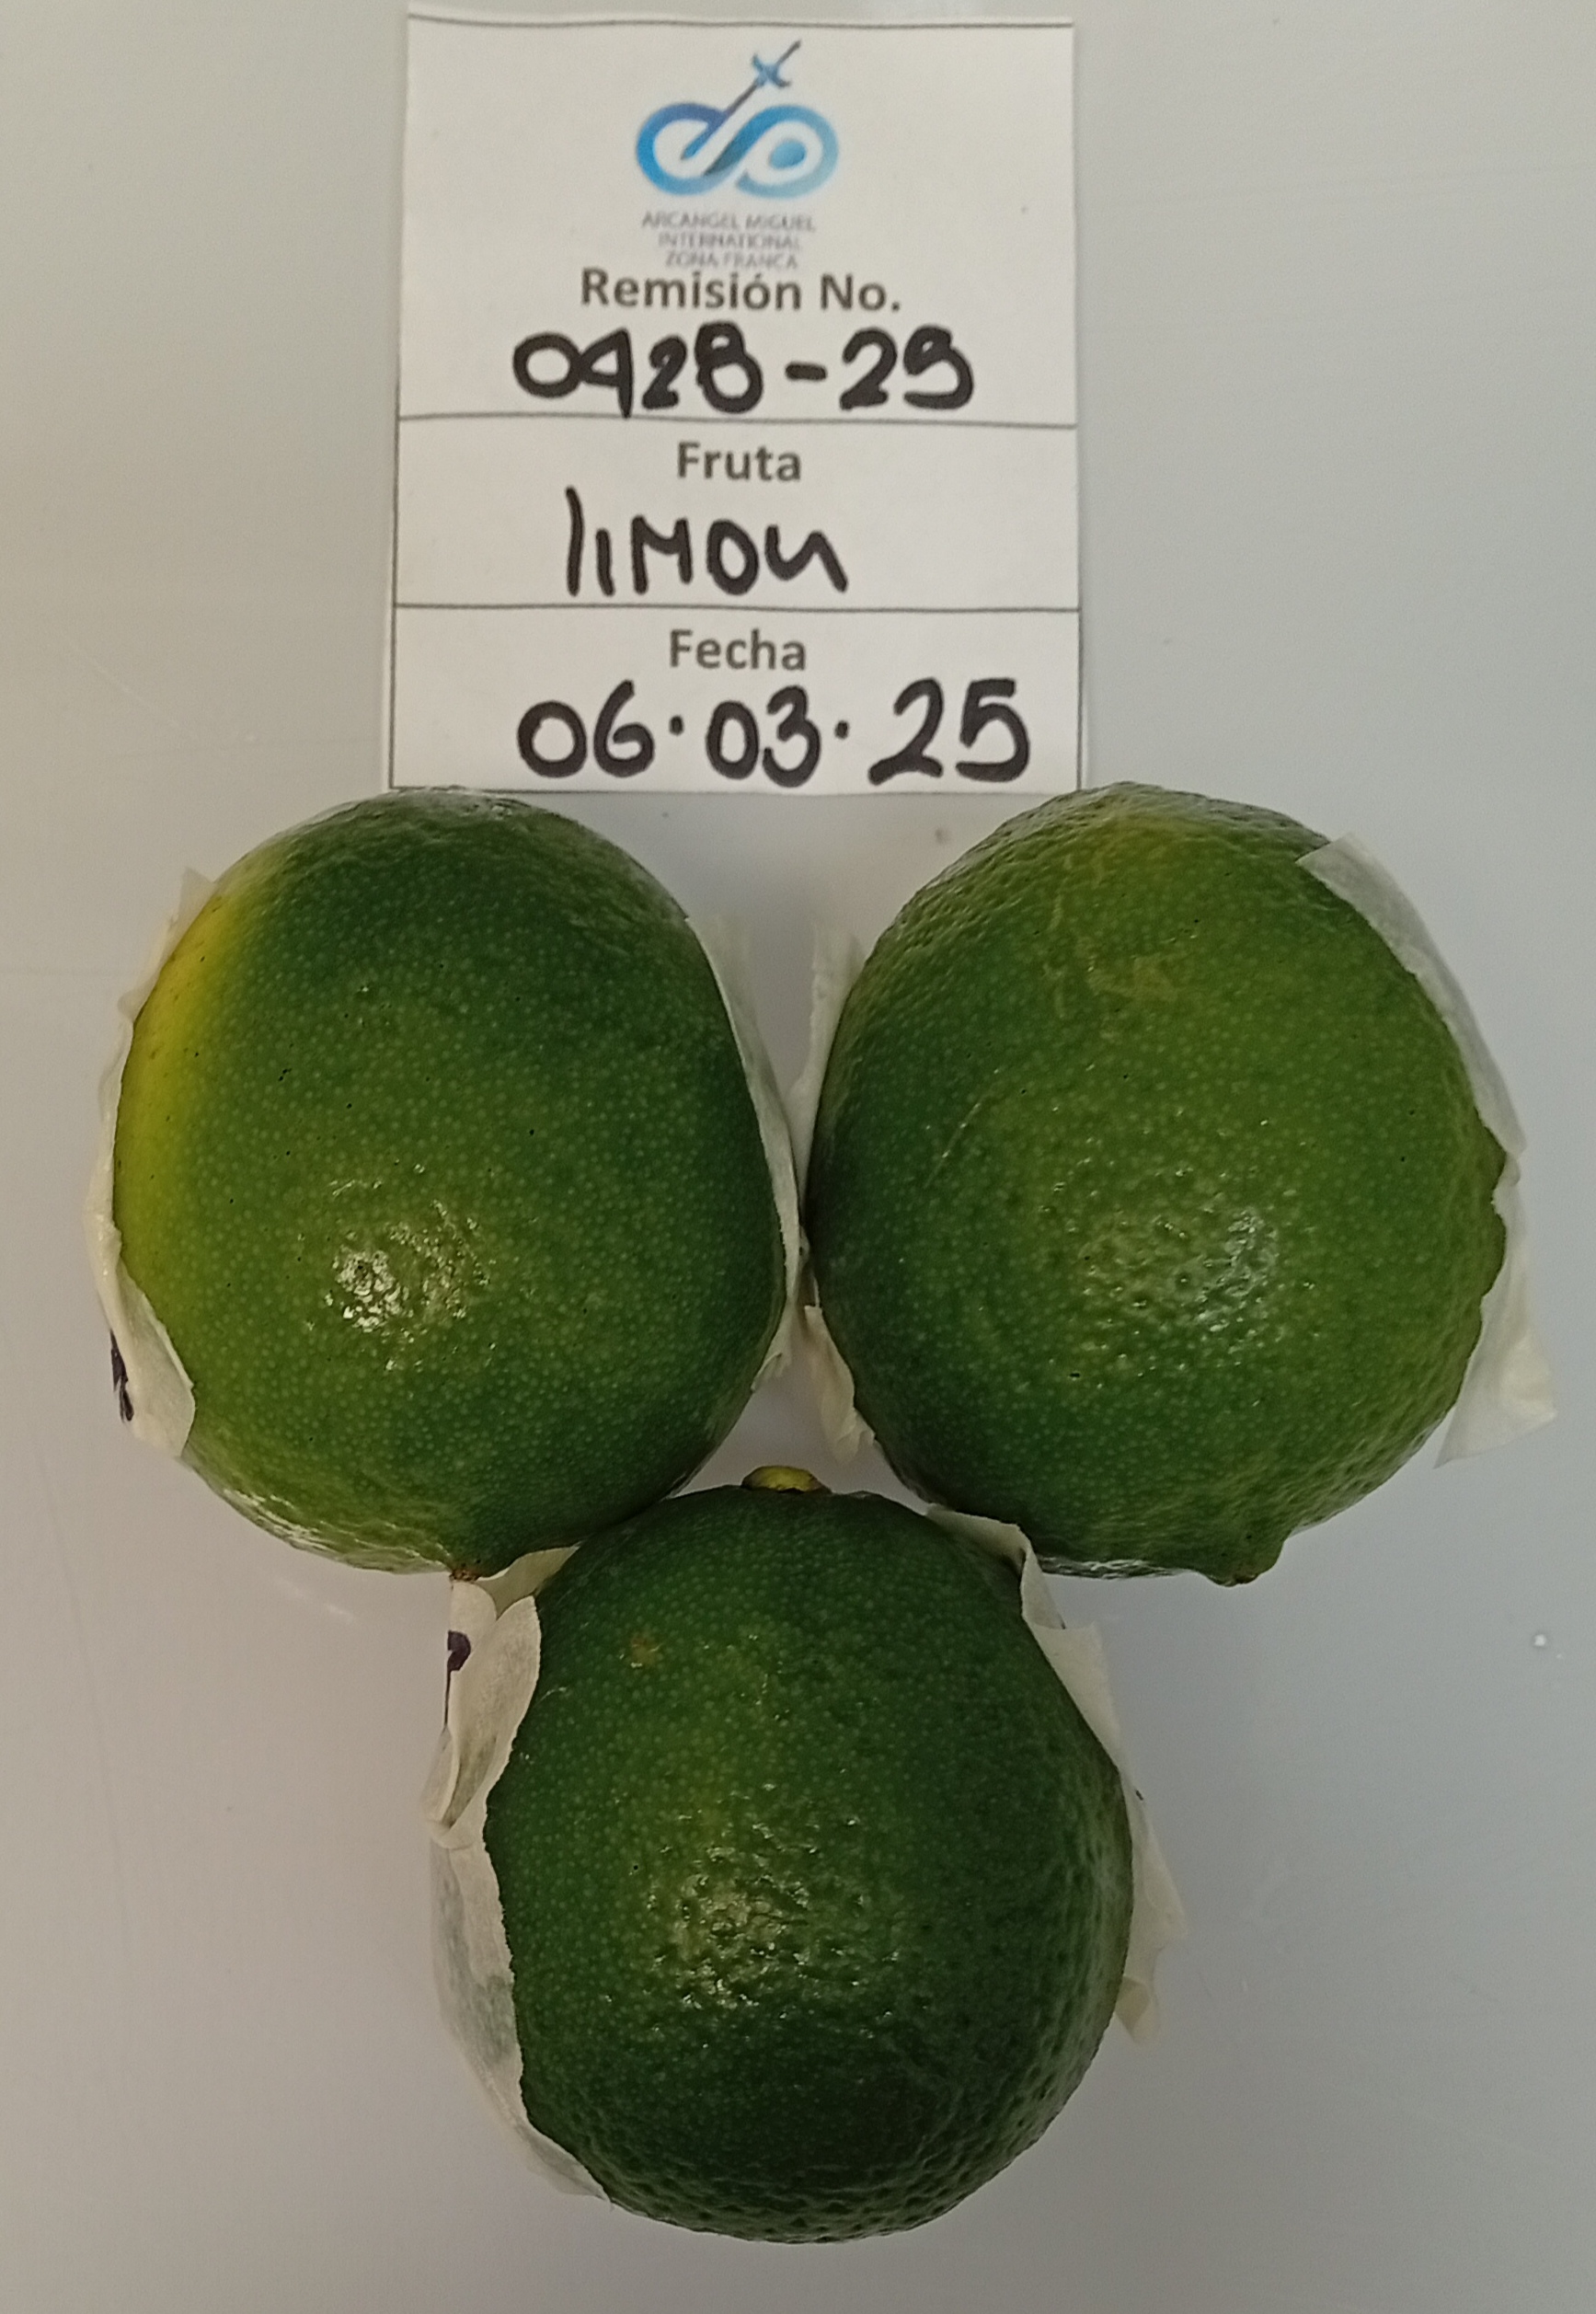 ARCANGEL MIGUEL
INTERNATIONAL
ZONA FRANCA
Remisión No.
0928-29
Fruta
lIMON
Fecha
06.03.25